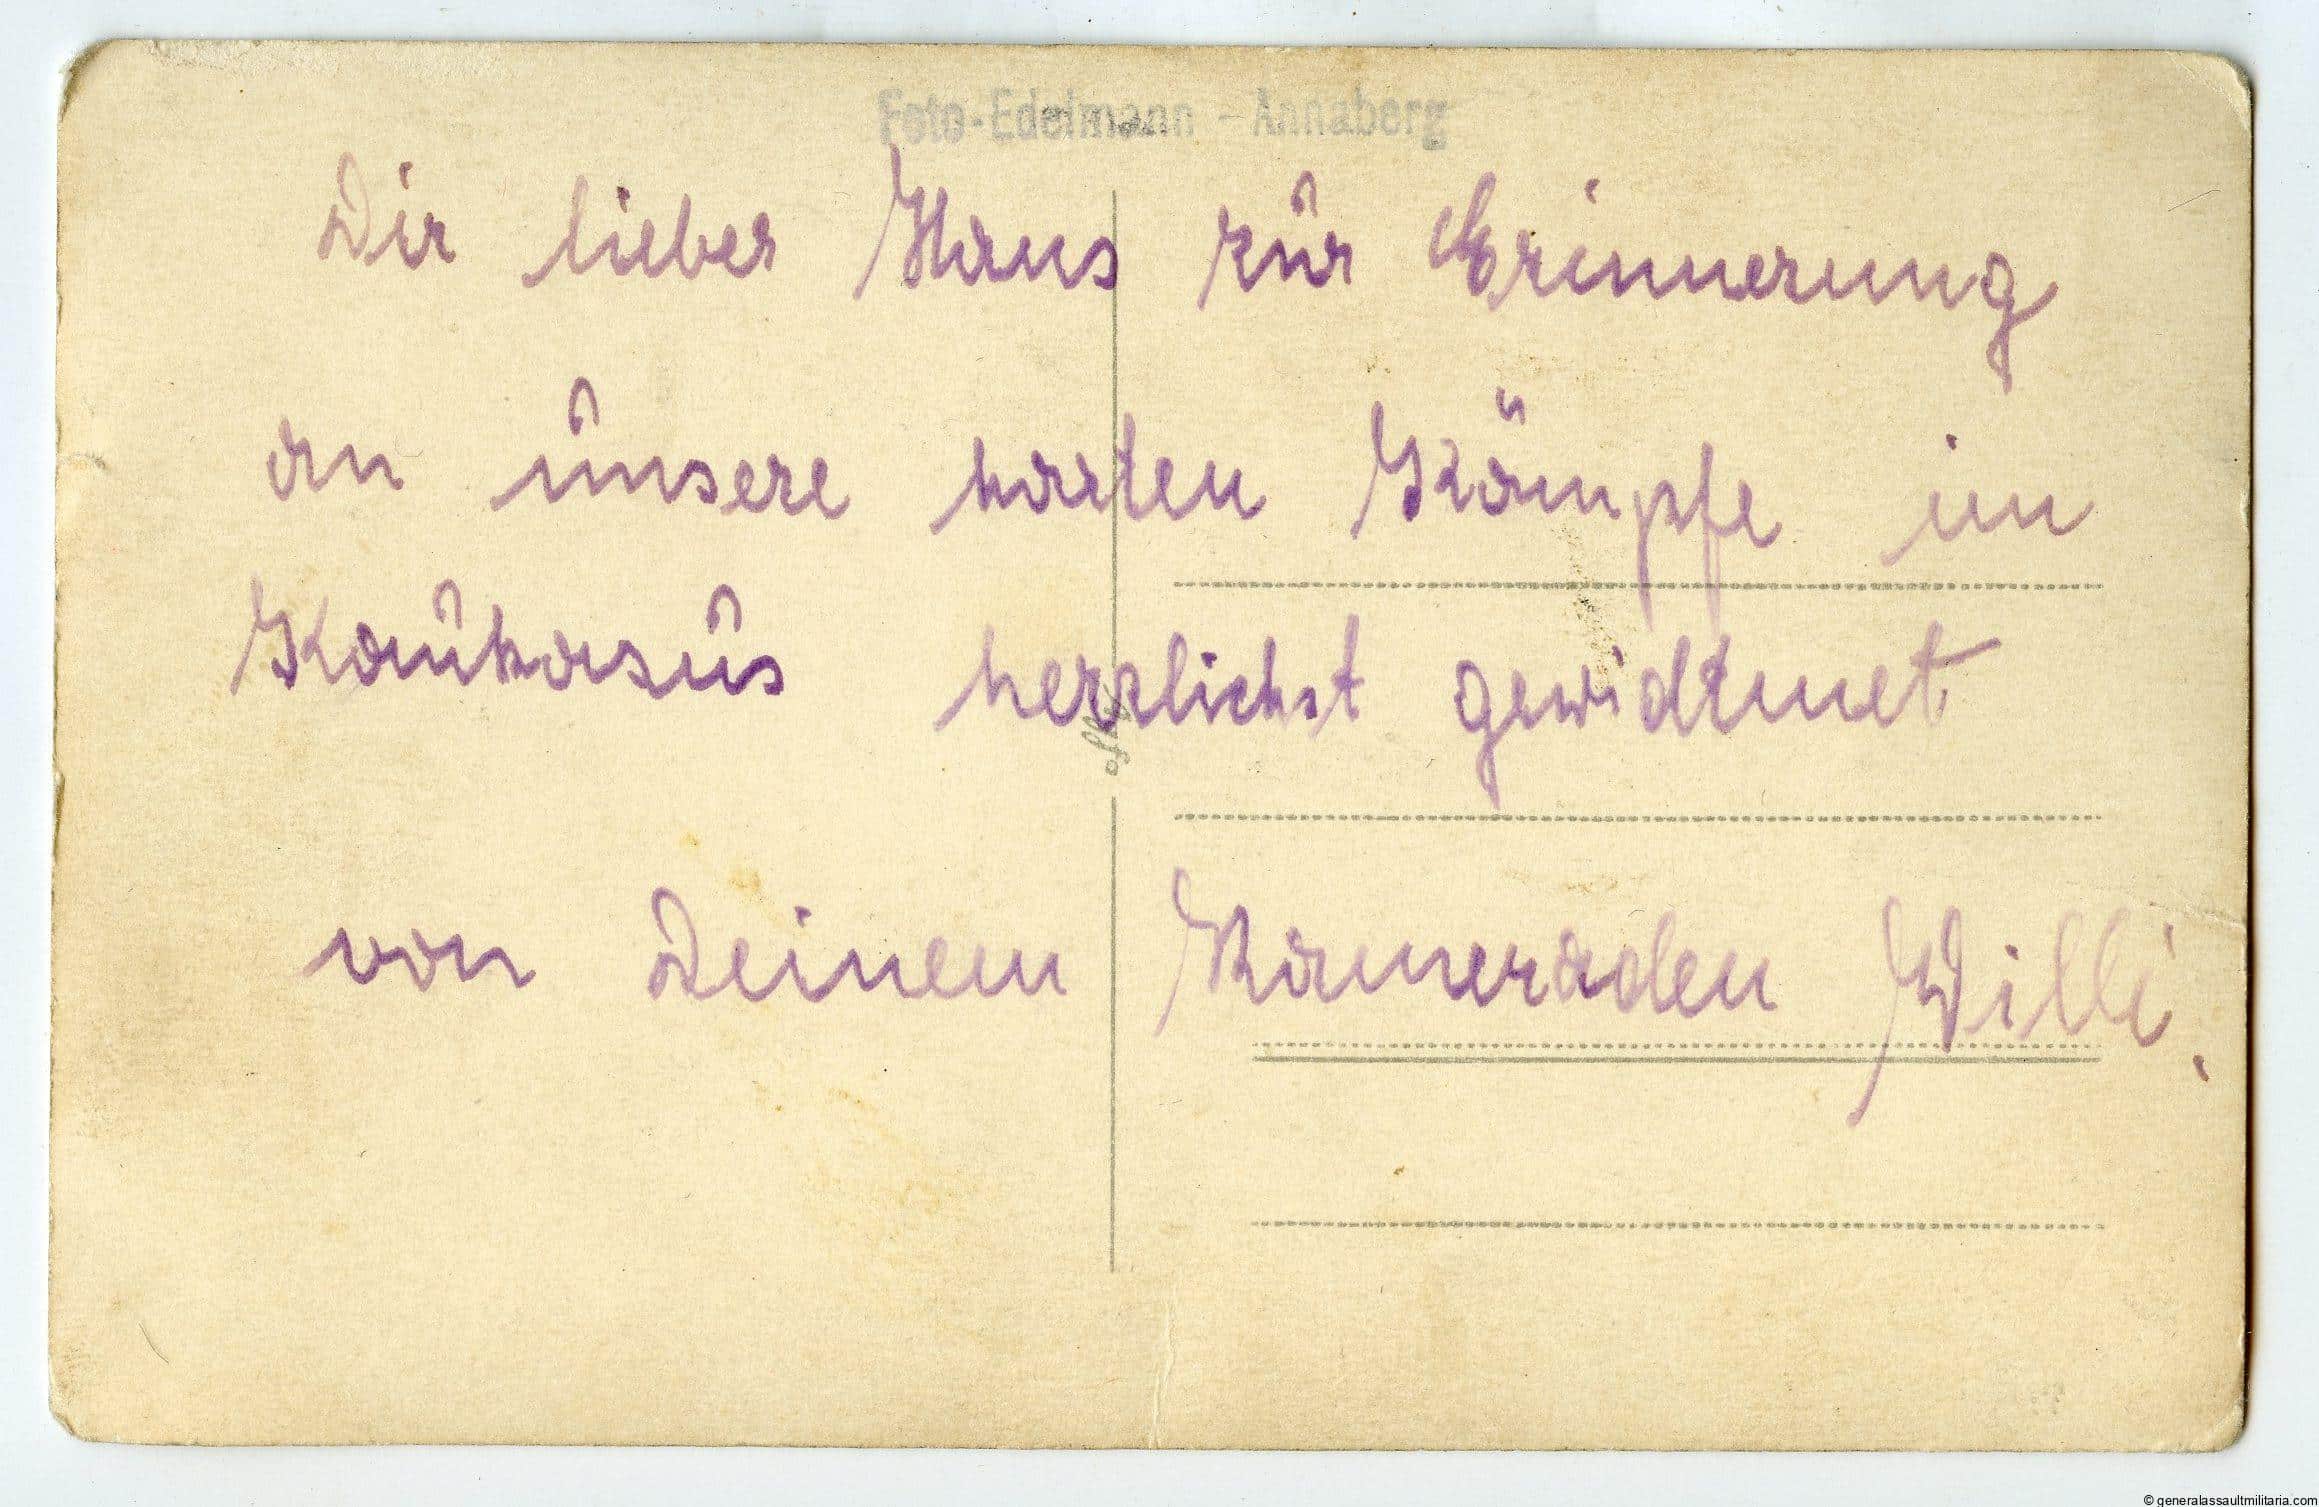 Foto-Edelmann - Annaberg
Dir lieber Hans zur Erinnerung
an unsere harten Kämpfe im
Kaukasus herzlichst gewidmet
von Deinem Kameraden Willi.
© generalassaultmilitaria.com